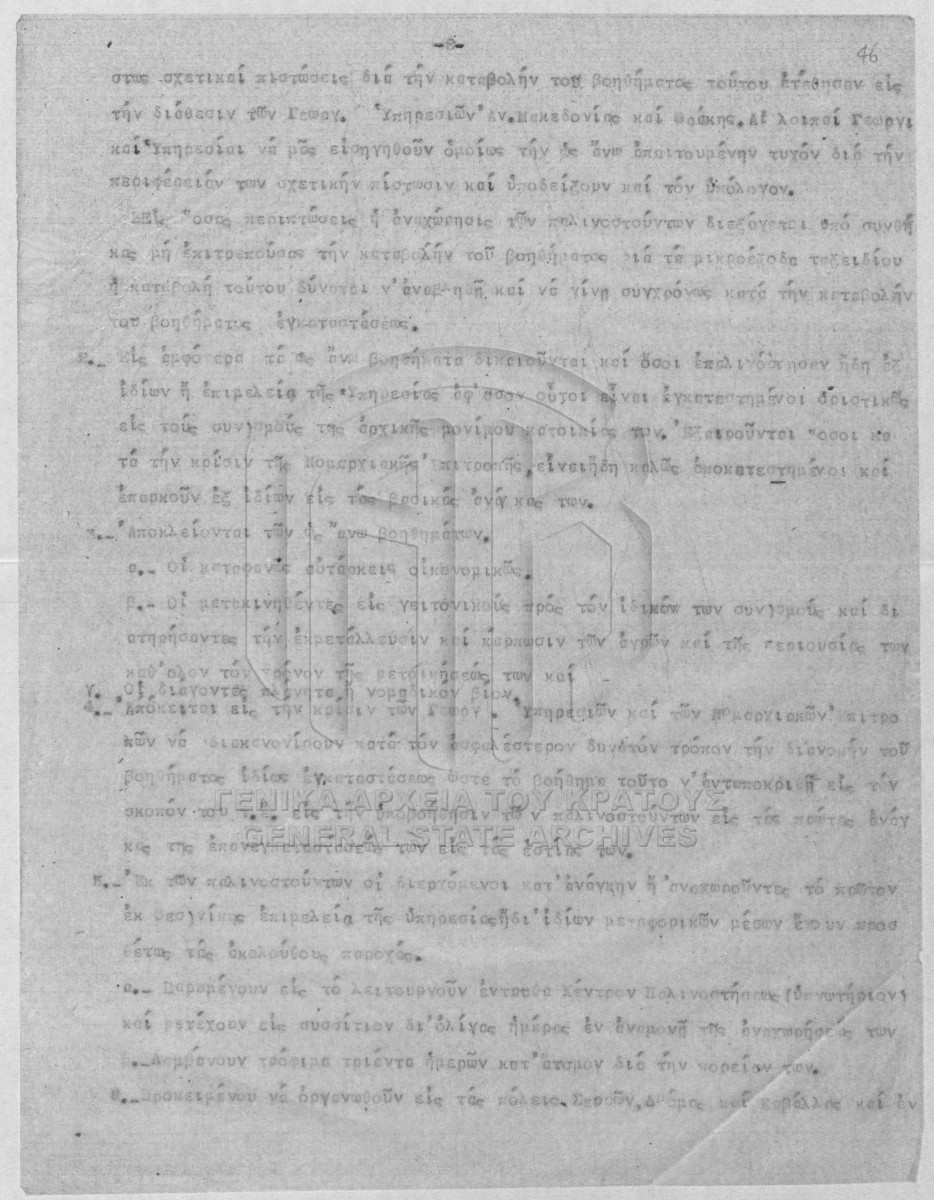 -2-
46
στως σχετικαί πιστώσεις διά τήν καταβολήν τοῦ βοηθήματος τούτου ἐτέθησαν εἰς
τήν διάθεσιν τῶν Γεωργ. Ὑπηρεσιῶν Ἀν.Μακεδονίας καί Θράκης. Αἱ λοιπαί Γεωργι
καί Ὑπηρεσίαι νά μᾶς εἰσηγηθοῦν ὁμοίως τήν ὡς ἄνω ἀπαιτουμένην τυχόν διά τήν
περιφέρειάν των σχετικήν πίστωσιν καί ὑποδείξουν καί τόν ὑπόλογον.
Εἰς ὅσας περιπτώσεις ἡ ἀναχώρησις τῶν παλινοστούντων διεξάγεται ὑπό συνθή
κας μή ἐπιτρεπούσας τήν καταβολήν τοῦ βοηθήματος διά τά μικροέξοδα ταξειδίου
ἡ καταβολή τούτου δύναται ν'ἀναβληθῇ καί νά γίνῃ συγχρόνως κατά τήν καταβολήν
τοῦ βοηθήματος ἐγκαταστάσεως.
2.- Εἰς ἀμφότερα τά ὡς ἄνω βοηθήματα δικαιοῦνται καί ὅσοι ἐπαλινόστησαν ἤδη ἐξ
ἰδίων ἤ ἐπιμελείᾳ τῆς Ὑπηρεσίας ἐφ'ὅσον οὗτοι εἶναι ἐγκατεστημένοι ὁριστικῶς
εἰς τούς συν)σμούς τῆς ἀρχικῆς μονίμου κατοικίας των. Ἐξαιροῦνται ὅσοι κα
τά τήν κρίσιν τῆς Νομαρχιακῆς Ἐπιτροπῆς, εἶναι ἤδη καλῶς ἀποκατεστημένοι καί
ἐπαρκοῦν ἐξ ἰδίων εἰς τάς βασικάς ἀνάγκας των.
3.- Ἀποκλείονται τῶν ὡς ἄνω βοηθημάτων.
α.- Οἱ καταφανῶς αὐτάρκεις οἰκονομικῶς.
β.- Οἱ μετακινηθέντες εἰς γειτονικούς πρός τόν ἰδικόν των συν)σμούς καί δι
ατηρήσαντες τήν ἐκμετάλλευσιν καί κάρπωσιν τῶν ἀγρῶν καί τῆς περιουσίας των
καθ'ὅλον τόν χρόνον τῆς μετοικήσεώς των καί
γ. Οἱ διάγοντες πλάνητα ἤ νομαδικόν βίον.
4.- Ἀπόκειται εἰς τήν κρίσιν τῶν Γεωργ. Ὑπηρεσιῶν καί τῶν Νομαρχιακῶν Ἐπιτρο
πῶν νά διακανονίσουν κατά τόν ἀσφαλέστερον δυνατόν τρόπον τήν διανομήν τοῦ
βοηθήματος ἰδίως ἐγκαταστάσεως ὥστε τό βοήθημα τοῦτο ν'ἀνταποκριθῇ εἰς τόν
σκοπόν του τ.ἔ. εἰς τήν ὑποβοήθησιν τῶν παλινοστούντων εἰς τάς πρώτας ἀνάγ
κας τῆς ἐπανεγκαταστάσεώς των εἰς τάς ἑστίας των.
5.- Ἐκ τῶν παλινοστούντων οἱ διερχόμενοι κατ'ἀνάγκην ἤ ἀναχωροῦντες τό πρῶτον
ἐκ Θεσ)νίκης ἐπιμελείᾳ τῆς ὑπηρεσίας ἤ δι'ἰδίων μεταφορικῶν μέσων ἔχουν προσ
θέτως τάς ἀκολούθους παροχάς.
α.- Παραμένουν εἰς τό λειτουργοῦν ἐνταῦθα Κέντρον Παλινοστήσεως (ὑπνωτήριον)
καί μετέχουν εἰς συσσίτιον δι'ὀλίγας ἡμέρας ἐν ἀναμονῇ τῆς ἀναχωρήσεώς των
β.-Λαμβάνουν τρόφιμα τριάντα ἡμερῶν κατ'ἄτομον διά τήν πορείαν των.
6.- Προκειμένου νά ὀργανωθοῦν εἰς τάς πόλεις Σερρῶν, Δράμας καί Καβάλλας καί ἐν
ΓΕΝΙΚΑ ΑΡΧΕΙΑ ΤΟΥ ΚΡΑΤΟΥΣ
GENERAL STATE ARCHIVES